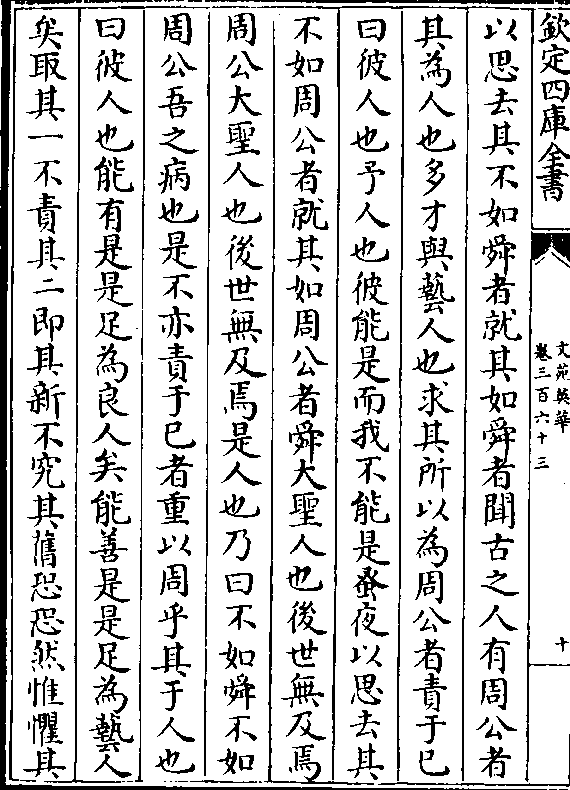 欽定四庫全書
文苑英華
卷三百六十三
十
以思去其不如舜者就其如舜者聞古之人有周公者
其為人也多才與藝人也求其所以為周公者責于已
曰彼人也予人也彼能是而我不能是蚤夜以思去其
不如周公者就其如周公者舜大聖人也後世無及焉
周公大聖人也後世無及焉是人也乃曰不如舜不如
周公吾之病也是不亦責于已者重以周乎其于人也
曰彼人也能有是是足為良人矣能善是是足為藝人
矣取其一不責其二即其新不究其舊恐恐然惟懼其